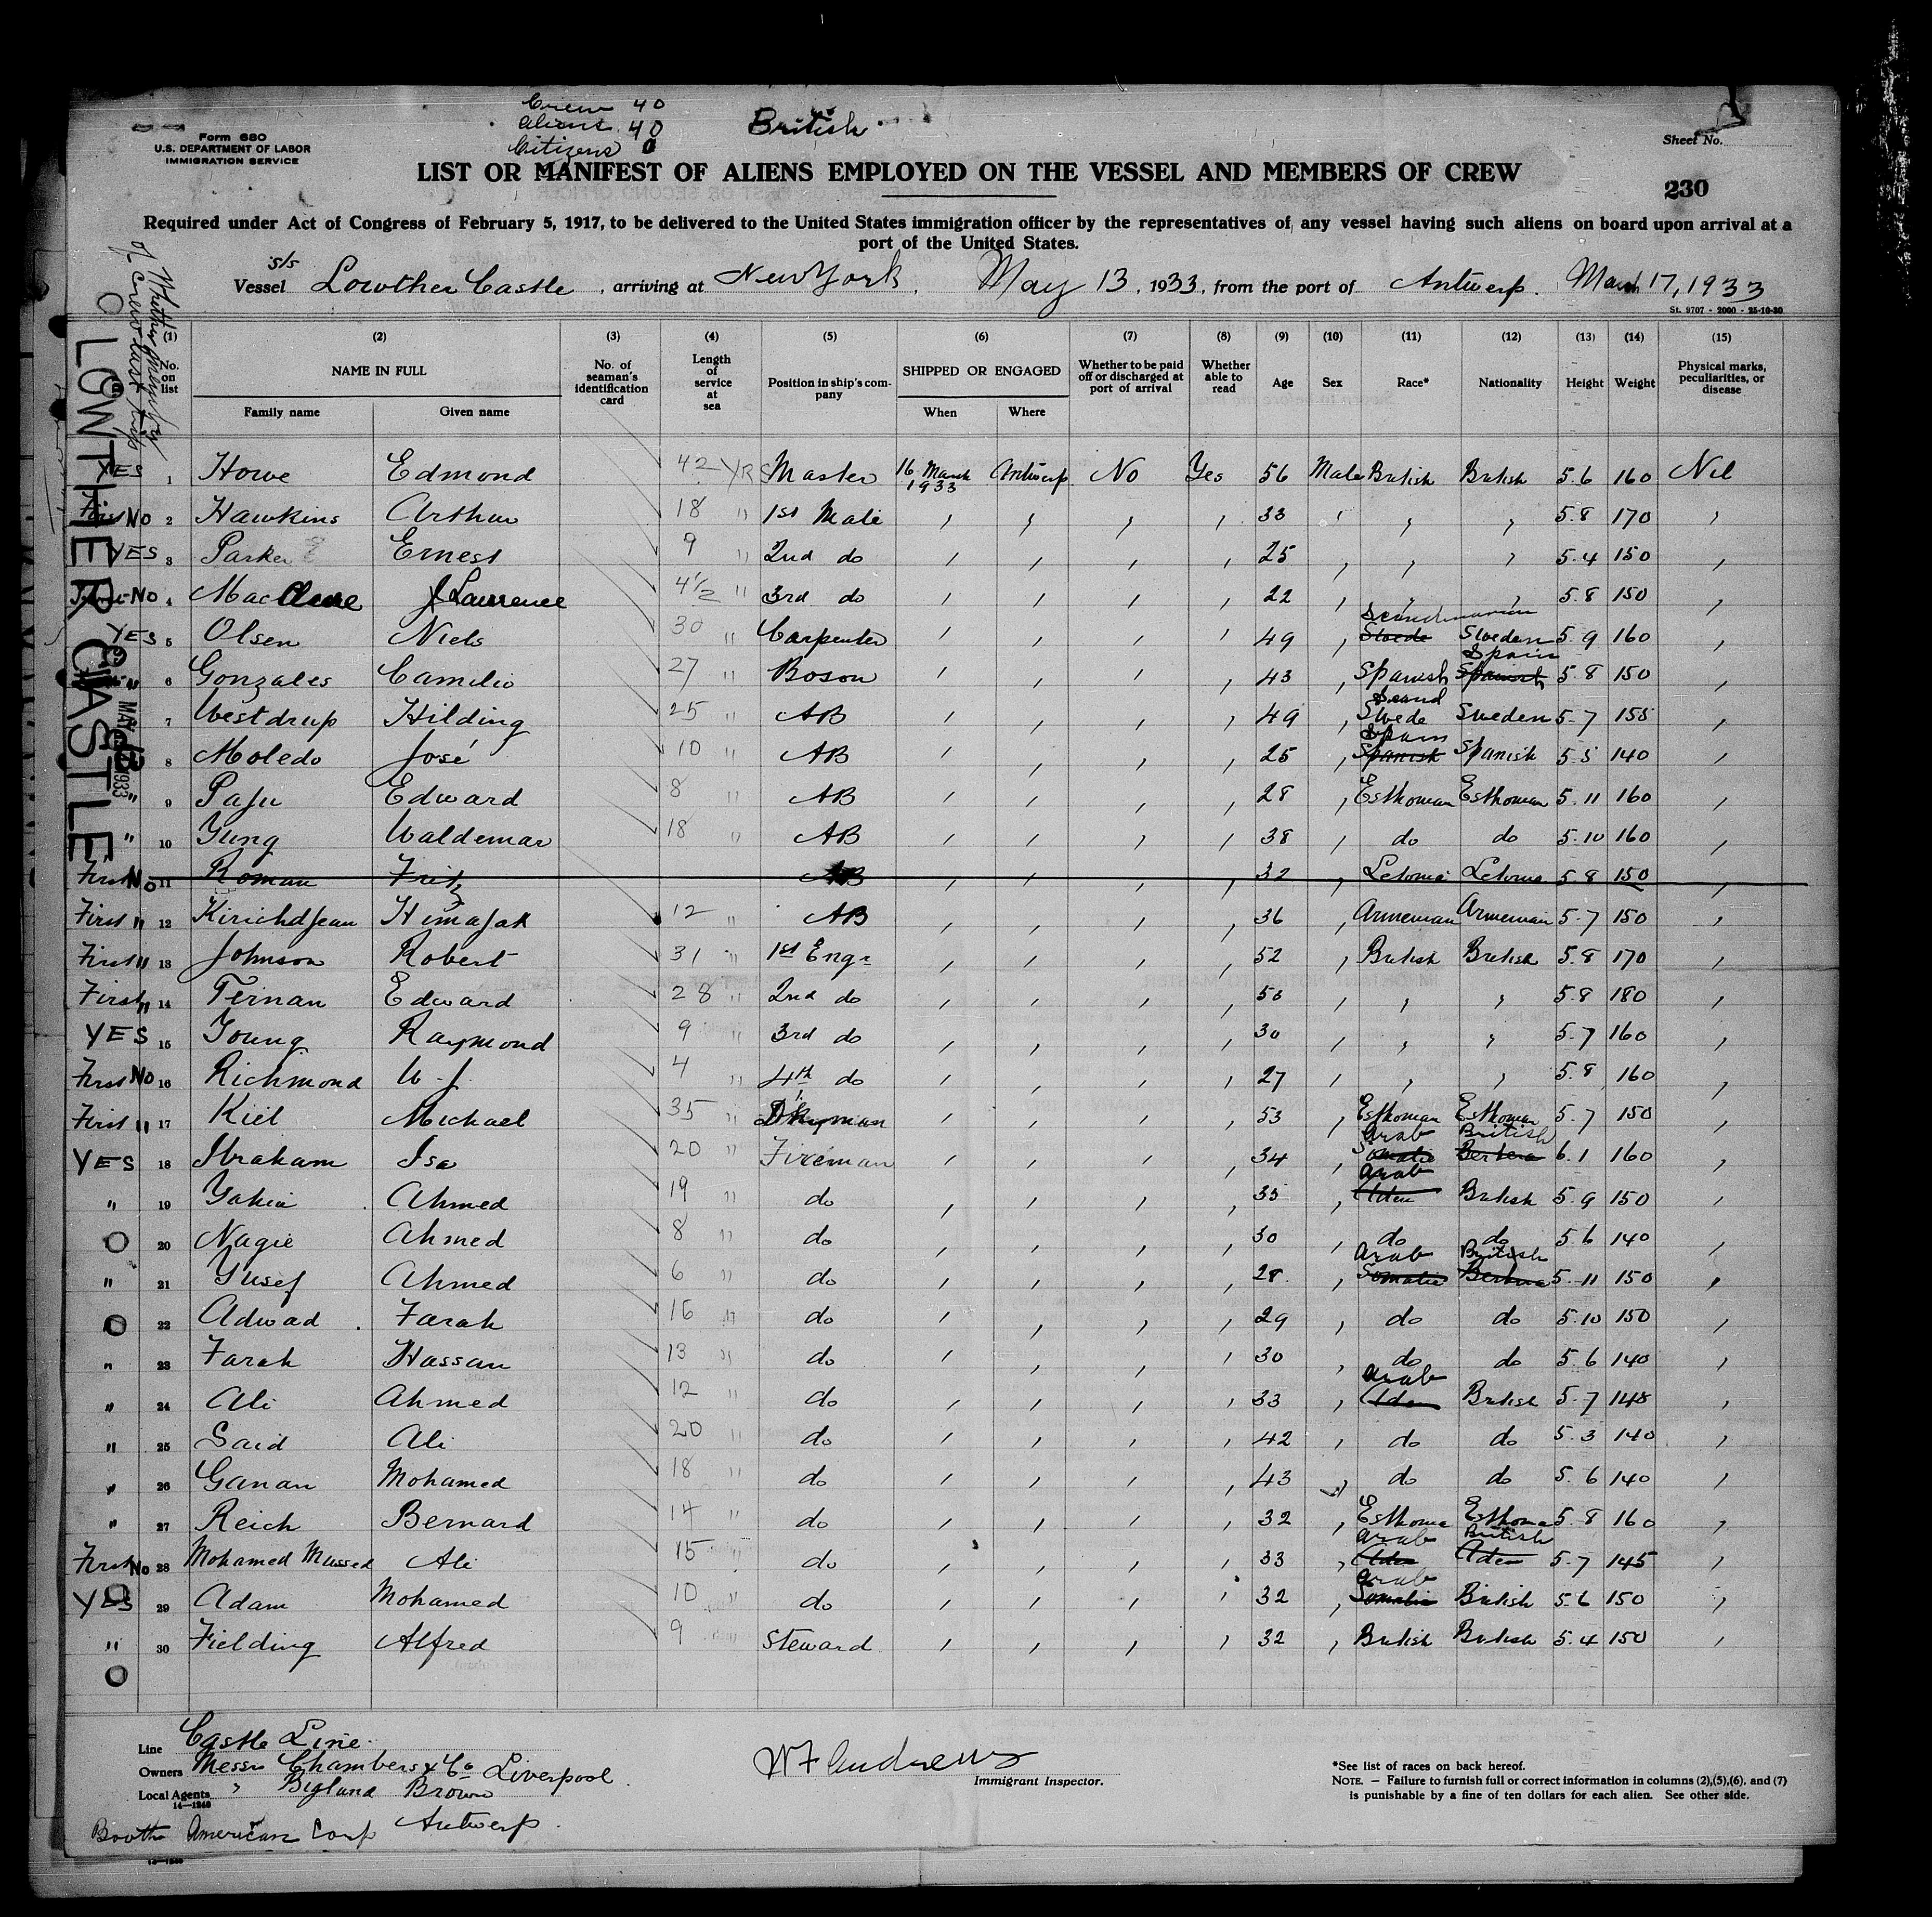 Crew 40
Aliens 40
Citizens 0
British
Form 680
U.S. DEPARTMENT OF LABOR
IMMIGRATION SERVICE
Sheet No.
LIST OR MANIFEST OF ALIENS EMPLOYED ON THE VESSEL AND MEMBERS OF CREW
230
Required under Act of Congress of February 5, 1917, to be delivered to the United States immigration officer by the representatives of any vessel having such aliens on board upon arrival at a
port of the United States.
s/s
Vessel Lowther Castle, arriving at New York, May 13, 1933, from the port of Antwerp. March 17, 1933
St. 9707 - 2000 - 25-10-30
LOWTHER CASTLE
Whether member of crew last trip
(2) (3) (4) (5) (6) (7) (8) (9) (10) (11) (12) (13) (14) (15)
No. on list NAME IN FULL Family name Given name No. of seaman's identification card Length of service at sea Position in ship's company SHIPPED OR ENGAGED When Where Whether to be paid off or discharged at port of arrival Whether able to read Age Sex Race* Nationality Height Weight Physical marks, peculiarities, or disease
YES 1 Howe Edmond 42 YRS Master 16 March 1933 Antwerp No Yes 56 Male British British 5.6 160 Nil
First No 2 Hawkins Arthur 18 " 1st Mate 33 5.8 170
YES 3 Parker Ernest 9 " 2nd do 25 5.4 150
No 4 J Lawrence 4 1/2 " 3rd do 22 5.8 150
YES 5 Olsen Niels 30 " Carpenter 49 Swede Scandinavian Sweden 5.9 160
" 6 Gonzales Camilio 27 " Boson 43 Spanish Spanish Spain 5.8 150
7 Westdrup Hilding 25 " AB 49 Scand Swede Sweden 5.7 155
8 Moledo José 10 " AB 25 Spanish Spain Spanish 5.5 140
" 9 Paju Edward 8 " AB 28 Esthonian Esthonian 5.11 160
" 10 Yung Waldemar 18 " AB 38 do do 5.10 160
First No 11 Roman Fritz AB 32 5.8 150
First " 12 AB 36 Armenian Armenian 5.7 150
First " 13 Johnson Robert 31 " 1st Engr 52 British British 5.8 170
First " 14 Ternan Edward 28 " 2nd do 50 5.8 180
YES 15 Young Raymond 9 " 3rd do 30 5.7 160
First No 16 Richmond W. J. 4 " 4th do 27 5.8 160
First " 17 Kiel Michael 35 " 53 Esthonian Esthonian 5.7 150
YES 18 Ibraham Isa 20 " Fireman 34 Somalie Arab Berbera British 6.1 160
" 19 Yahia Ahmed 19 " do 35 Aden Arab British 5.9 150
20 Nagie Ahmed 8 " do 30 do do 5.6 140
" 21 Yusef Ahmed 6 " do 28 Somalie Arab Berbera British 5.11 150
22 Adwad Farah 16 " do 29 do do 5.10 150
" 23 Farah Hassan 13 " do 30 do do 5.6 140
" 24 Ali Ahmed 12 " do 33 Aden Arab British 5.7 148
" 25 Said Ali 20 " do 42 do do 5.3 140
" 26 Ganan Mohamed 18 " do 43 do do 5.6 140
" 27 Reich Bernard 14 " do 32 Esthonia Esthonia 5.8 160
First No 28 Mohamed Mussed Ali 15 " do 33 Aden Arab Aden British 5.7 145
YES 29 Adam Mohamed 10 " do 32 Somalie Arab British 5.6 150
" 30 Fielding Alfred 9 Steward 32 British British 5.4 150
Line Castle Line.
Owners Messrs Chambers & Co Liverpool
Local Agents " Brown
14—1240
Booth American Corp Antwerp.
Immigrant Inspector.
*See list of races on back hereof.
NOTE. — Failure to furnish full or correct information in columns (2),(5),(6), and (7)
is punishable by a fine of ten dollars for each alien. See other side.